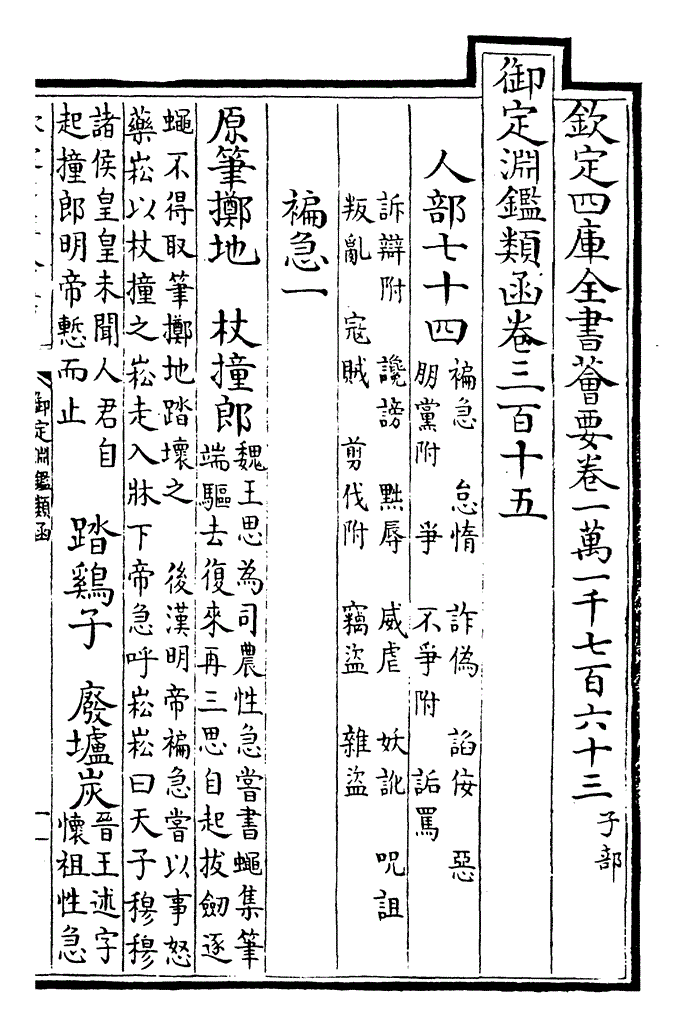 欽定四庫全書薈要卷一萬一千七百六十三 子部
御定淵鑑類函卷三百十五
人部七十四
褊急 怠惰 詐偽 諂佞 惡
朋黨附 爭 不爭附 詬罵
訴辯附 讒謗 㸃辱 威虐 妖訛 呪詛
叛亂 寇賊 剪伐附 竊盜 雜盜
褊急一
原筆擲地 杖撞郎
魏王思為司農性急嘗書蠅集筆
端驅去復來再三思自起拔劒逐
蠅不得取筆擲地踏壞之 後漢明帝褊急嘗以事怒
藥崧以杖撞之崧走入牀下帝急呼崧崧曰天子穆穆
諸侯皇皇未聞人君自
起撞郎明帝慙而止
踏鷄子 廢壚炭
晉王述字
懷祖性急
御定淵鑑類函